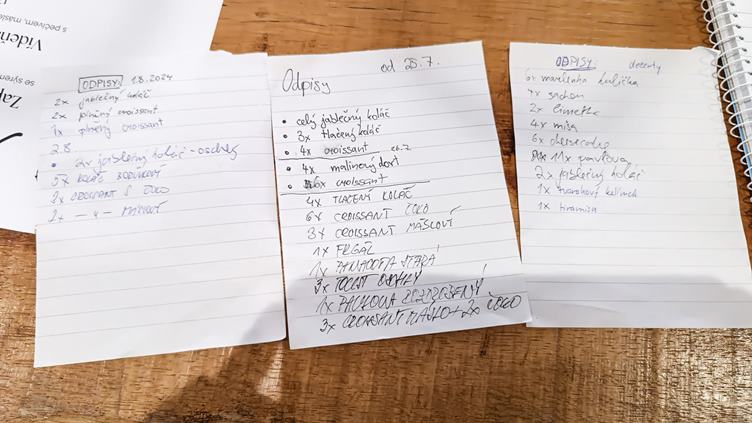 Vídeň
s pečivem, máslem
Zap
se sýrem
ODPISY 1.8.2024
2x jablečný koláč
2x plněný croissant
1x plněný croissant
2.8
• 2x jablečný koláč - oschlý
5x KOLÁČ BORŮVKOVÝ
2x CROISSANT S ČOKO
2x — 4 —
Odpisy od 25.7.
• celý jablečný koláč
• 3x tlačený koláč
• 4x croissant
• 4x malinový dort
• 6x croissant
4x TLAČENÝ KOLÁČ
6x CROISSANT ČOKO
3x CROISSANT MÁSLOVÝ
1x FRGÁL
1x PANACOTA STARÁ
3x TOUST
1x PAVLOVA
3x CROISSANT MÁSLO + 2x ČOKO
ODPISY: dezerty
6x marlenka kulička
4x sachr
2x limetka
4x misa
6x cheesecake
11x pavlova
2x jablečný koláč
1x tvarohový kelímek
1x tiramisu